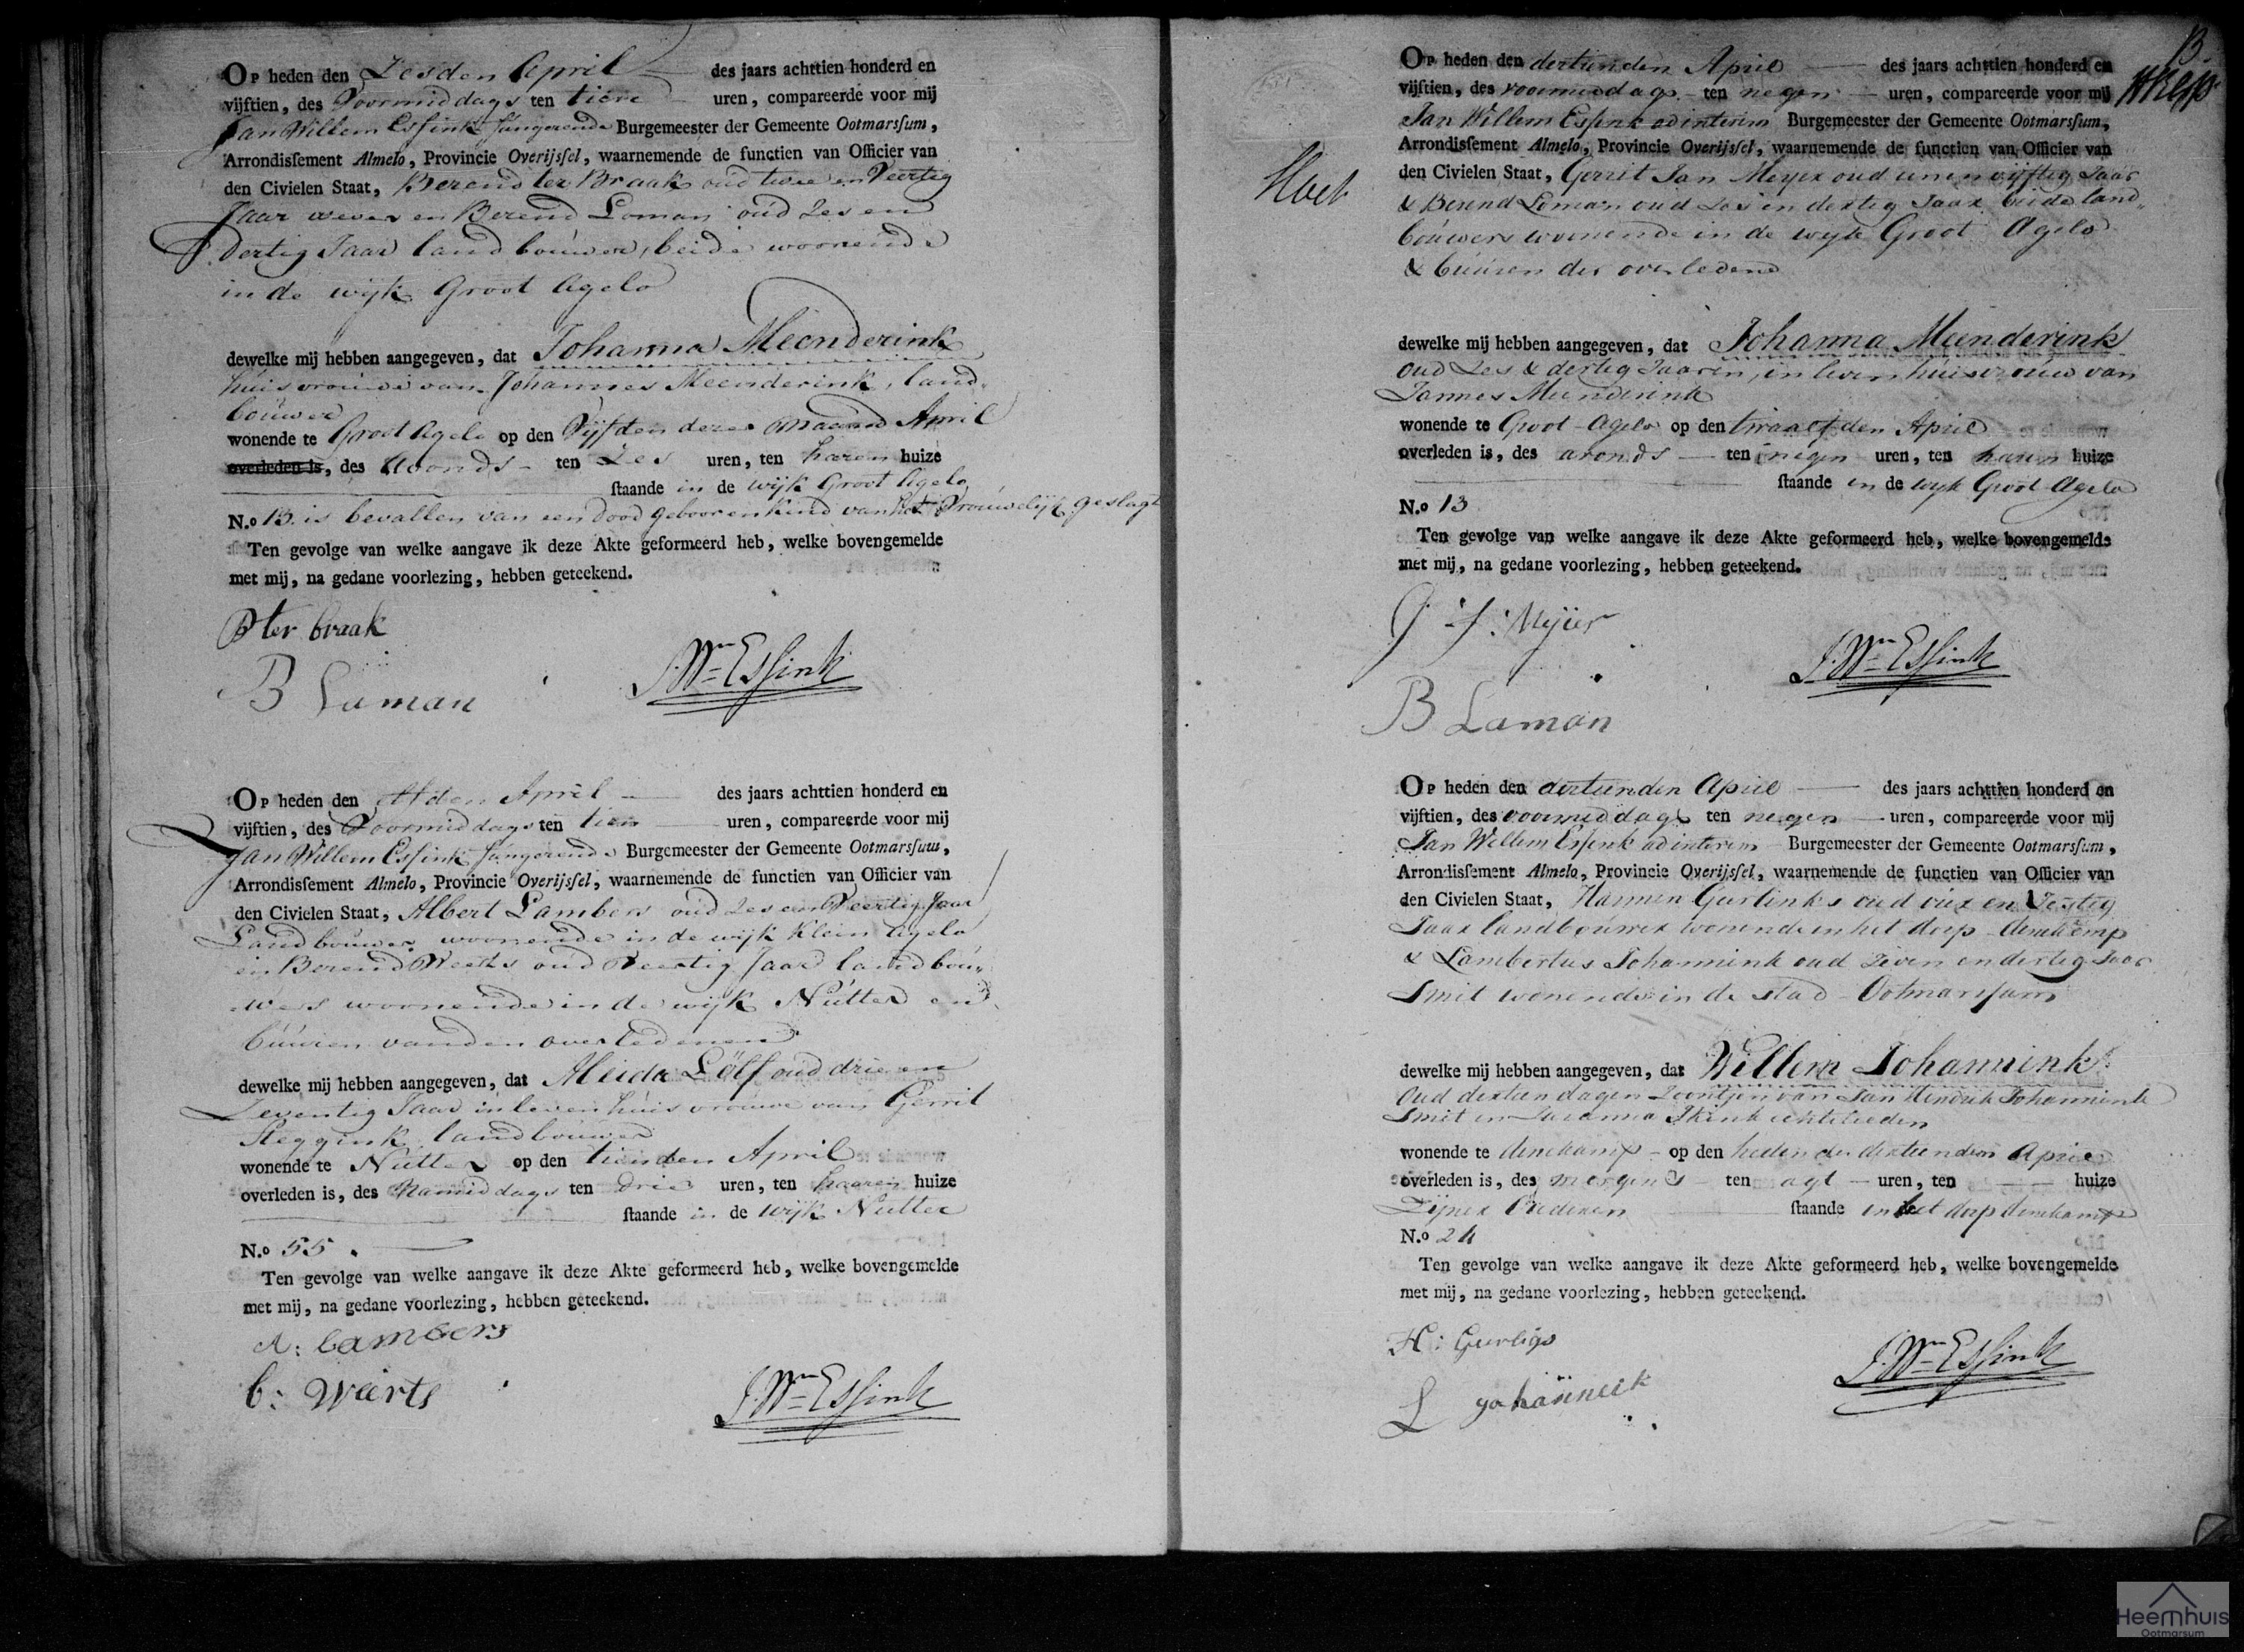 Op heden den Zesden April des jaars achttien honderd en
vijftien, des Voormiddags ten tiene uren, compareerde voor mij
Jan Willem Essink fungerende Burgemeester der Gemeente Ootmarsſum,
Arrondisſement Almelo, Provincie Overijsſel, waarnemende de functien van Officier van
den Civielen Staat, Berend ter Braak oud twee en Veertig
Jaar wever en Berend Loman oud Zes en
dertig Jaar landbouwer, beide woonende
in de wijk Groot Agelo
dewelke mij hebben aangegeven, dat Johanna Meenderink
huisvrouwe van Johannes Meenderink, land-
bouwer
wonende te Groot Agelo op den Vijfden dezer Maand April
overleden is, des Avonds ten Zes uren, ten haren huize
ſtaande in de wijk Groot Agelo
N.o 13. is bevallen van een dood gebooren kind van het Vrouwelijk geslagt
Ten gevolge van welke aangave ik deze Akte geformeerd heb, welke bovengemelde
met mij, na gedane voorlezing, hebben geteekend.
B ter braak
J. Wm Essink
B Laman
Op heden den Elfden April des jaars achttien honderd en
vijftien, des Voormiddags ten tien uren, compareerde voor mij
Jan Willem Essink fungerende Burgemeester der Gemeente Ootmarsſum,
Arrondisſement Almelo, Provincie Overijsſel, waarnemende de functien van Officier van
den Civielen Staat, Albert Lambers oud Zes en Veertig Jaar
Landbouwer woonende in de wijk Klein Agelo
en Berend Weerts oud Veertig Jaar landbou-
wers woonende in de wijk Nutter en
buuren van den overledenen
dewelke mij hebben aangegeven, dat Aleida Lölf oud drie en
Zeventig Jaar in leven huisvrouwe van Gerrit
Steggink landbouwer
wonende te Nutter op den tienden April
overleden is, des Namiddags ten drie uren, ten haaren huize
ſtaande in de wijk Nutter
N.o 55.
Ten gevolge van welke aangave ik deze Akte geformeerd heb, welke bovengemelde
met mij, na gedane voorlezing, hebben geteekend.
A: Lambers
b: Weerts
J. Wm Essink
13
Op heden den dertienden April des jaars achttien honderd en
vijftien, des voormiddags ten negen uren, compareerde voor mij
Jan Willem Essink ad interim Burgemeester der Gemeente Ootmarsſum,
Arrondisſement Almelo, Provincie Overijsſel, waarnemende de functien van Officier van
den Civielen Staat, Gerrit Jan Meyer oud een en vijftig Jaar
& Berend Loman oud Zes en dertig Jaar beide land-
bouwers wonende in de wijk Groot Agelo
& buuren der overledene
dewelke mij hebben aangegeven, dat Johanna Meenderink
oud Zes & dertig Jaaren, in leven huisvrouw van
Jannes Meenderink
wonende te Groot Agelo op den twaalfden April
overleden is, des avonds ten negen uren, ten haren huize
ſtaande in de wijk Groot Agelo
N.o 13
Ten gevolge van welke aangave ik deze Akte geformeerd heb, welke bovengemelde
met mij, na gedane voorlezing, hebben geteekend.
G. J. Mejier
J. Wm Essink
B Laman
Op heden den dertienden April des jaars achttien honderd en
vijftien, des voormiddags ten negen uren, compareerde voor mij
Jan Willem Essink ad interim Burgemeester der Gemeente Ootmarsſum,
Arrondisſement Almelo, Provincie Overijsſel, waarnemende de functien van Officier van
den Civielen Staat, Harmen Geerlinks oud vier en
Jaar landbouwer wonende in het dorp denekamp
& Lambertus Johannink oud Zeven en dertig Jaar
Smit wonende in de stad Ootmarssum
dewelke mij hebben aangegeven, dat Willem Johannink
oud dertien dagen Zoontjen van Jan Hendrik Johannink
Smit en Susanna echtelieden
wonende te denekamp op den heden den dertienden April
overleden is, des morgens ten agt uren, ten huize
Zijner Ouderen ſtaande in het dorp denekamp
N.o 24
Ten gevolge van welke aangave ik deze Akte geformeerd heb, welke bovengemelde
met mij, na gedane voorlezing, hebben geteekend.
H: Geerligs
J. Wm Essink
L Johannink
Heemhuis
Ootmarsum